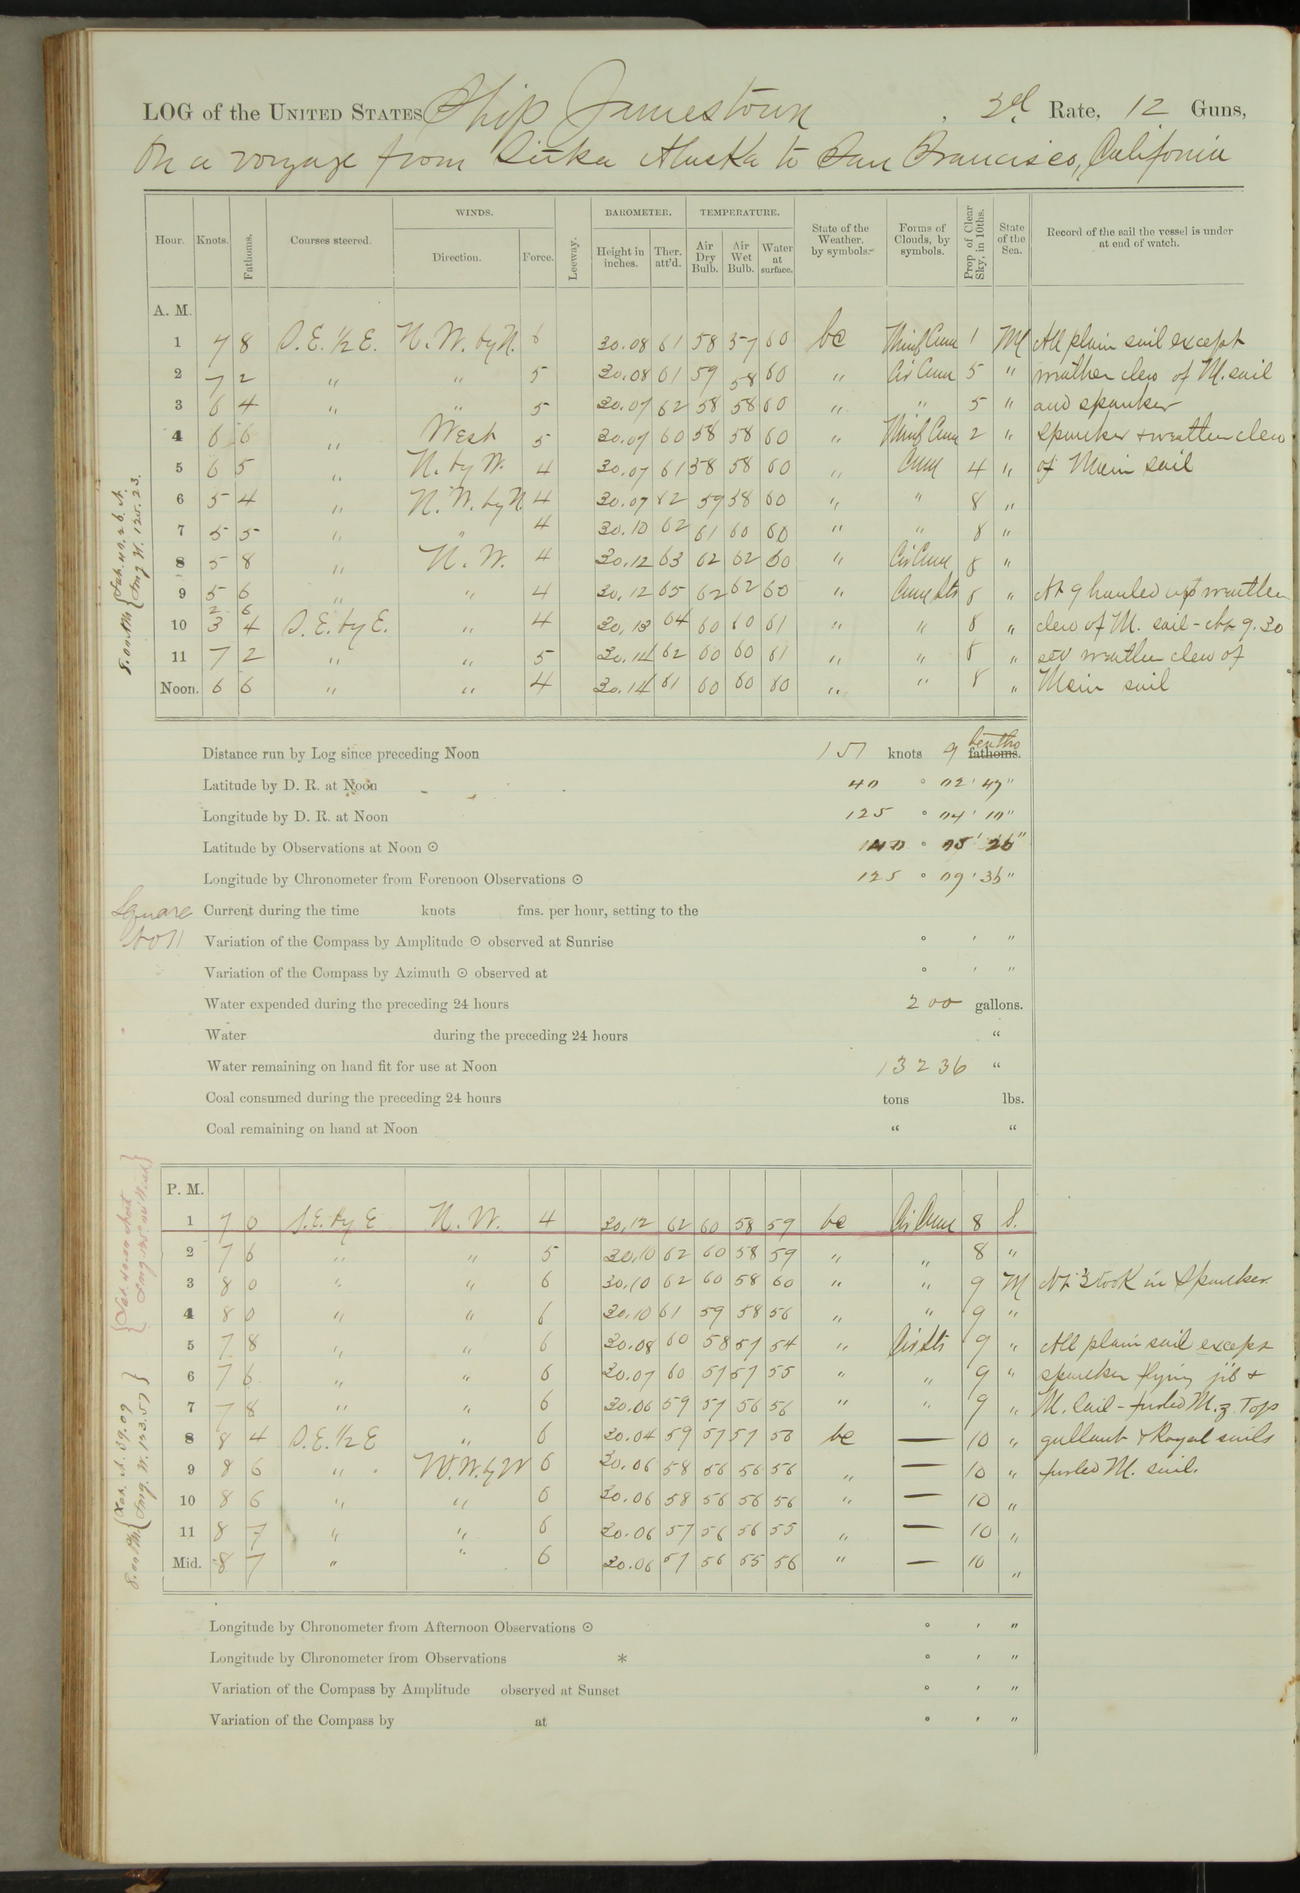 LOG of the UNITED STATES Ship Jamestown, 3d. Rate, 12 Guns,
On a voyage from Sitka Alaska to San Francisco, California
Hour. Knots. Fathoms. Courses steered. WINDS. Direction. Force. Leeway. BAROMETER. Height in inches. Ther. att'd. TEMPERATURE. Air Dry Bulb. Air Wet Bulb. Water at surface. State of the Weather, by symbols. Forms of Clouds, by symbols. Prop. of Clear Sky, in 10ths. State of the Sea. Record of the sail the vessel is under at end of watch.
A. M.
1 7 8 S.E. ½ E. N.W. by N. 6 30.08 61 58 57 60 bc Cum 1 M All plain sail except
2 7 2 " " 5 30.08 61 59 58 60 " Cir Cum 5 " weather clew of M. sail
3 6 4 " " 5 30.07 62 58 58 60 " " 5 " and spanker
4 6 6 " West 5 30.07 60 58 58 60 " Cum 2 " Spanker & weather clew
5 6 5 " N. by W. 4 30.07 61 58 58 60 " Cum 4 " of Main sail
6 5 4 " N.W. by N. 4 30.07 62 59 58 60 " " 8 "
7 5 5 " " 4 30.10 62 61 60 60 " " 8 "
8 5 8 " N.W. 4 30.12 63 62 62 60 " Cir Cum 8 "
9 5 6 " " 4 30.12 65 62 62 60 " Cum Str 8 " At 9 hauled up weather
2 6
10 3 4 S.E. by E. " 4 30.13 64 60 60 61 " " 8 " clew of M. sail - At 9.30
11 7 2 " " 5 30.14 62 60 60 61 " " 8 " set weather clew of
Noon. 6 6 " " 4 30.14 61 60 60 60 " " 8 " Main sail
8.00 AM { Lat. 40.26 N.
Long W. 125.23.
Distance run by Log since preceding Noon 157 knots 9 tenths fathoms.
Latitude by D. R. at Noon 40 ° 02 ' 47 "
Longitude by D. R. at Noon 125 ° 04 ' 10 "
Latitude by Observations at Noon ⊙ 40 ° 05 ' 26 "
Longitude by Chronometer from Forenoon Observations ⊙ 125 ° 09 ' 36 "
Square
Current during the time knots fms. per hour, setting to the
Variation of the Compass by Amplitude ⊙ observed at Sunrise ° ' "
Variation of the Compass by Azimuth ⊙ observed at ° ' "
Water expended during the preceding 24 hours 200 gallons.
Water during the preceding 24 hours "
Water remaining on hand fit for use at Noon 13236 "
Coal consumed during the preceding 24 hours tons lbs.
Coal remaining on hand at Noon " "
P. M.
1 7 0 S.E. by E N.W. 4 30.12 62 60 58 59 bc Cir Cum 8 S.
2 7 6 " " 5 30.10 62 60 58 59 " " 8 "
3 8 0 " " 6 30.10 62 60 58 60 " " 9 M At 3 took in Spanker.
4 8 0 " " 6 30.10 61 59 58 56 " " 9 "
5 7 8 " " 6 30.08 60 58 57 54 " Cir Str 9 " All plain sail except
6 7 6 " " 6 30.07 60 57 57 55 " " 9 " spanker flying jib &
7 7 8 " " 6 30.06 59 57 56 56 " " 9 " M. Sail - furled M.z. Top
8 8 4 S.E. ½ E " 6 30.04 59 57 57 56 bc — 10 " gallant & Royal sails
9 8 6 " N.W. by W 6 30.06 58 56 56 56 " — 10 " furled M. sail.
10 8 6 " " 6 30.06 58 56 56 56 " — 10 "
11 8 7 " " 6 30.06 57 56 56 55 " — 10 "
Mid. 8 7 " " 6 30.06 57 56 55 56 " — 10 "
8.00 PM { Lat. N. 39.09
Long. W. 123.57 }
Longitude by Chronometer from Afternoon Observations ⊙ ° ' "
Longitude by Chronometer from Observations * ° ' "
Variation of the Compass by Amplitude observed at Sunset ° ' "
Variation of the Compass by at ° ' "